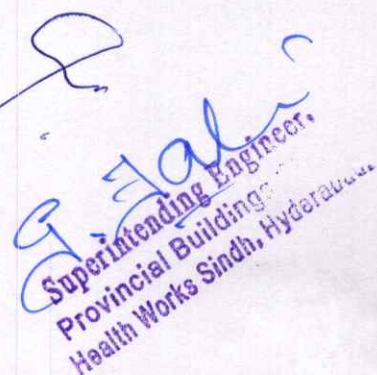 Superintending Engineer,
Provincial Buildings
Health Works Sindh, Hyderabad.